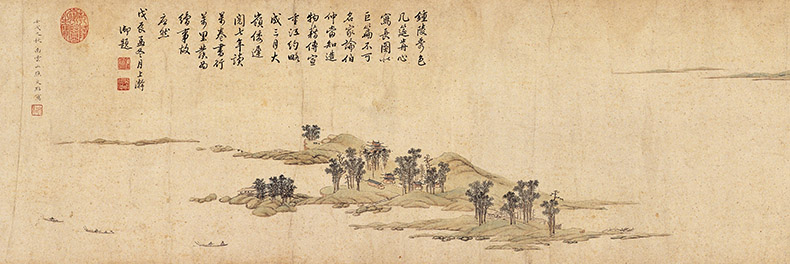 鍾陵秀色
几筵前心
寫長圖水
巨篇不可
名家論伯
仲當知造
物藉傳宣
重江約略
成三月大
嶺倭遲
閱七年讀
萬卷書行
萬里為
繪事故
應然
戊辰孟冬月上澣
御題